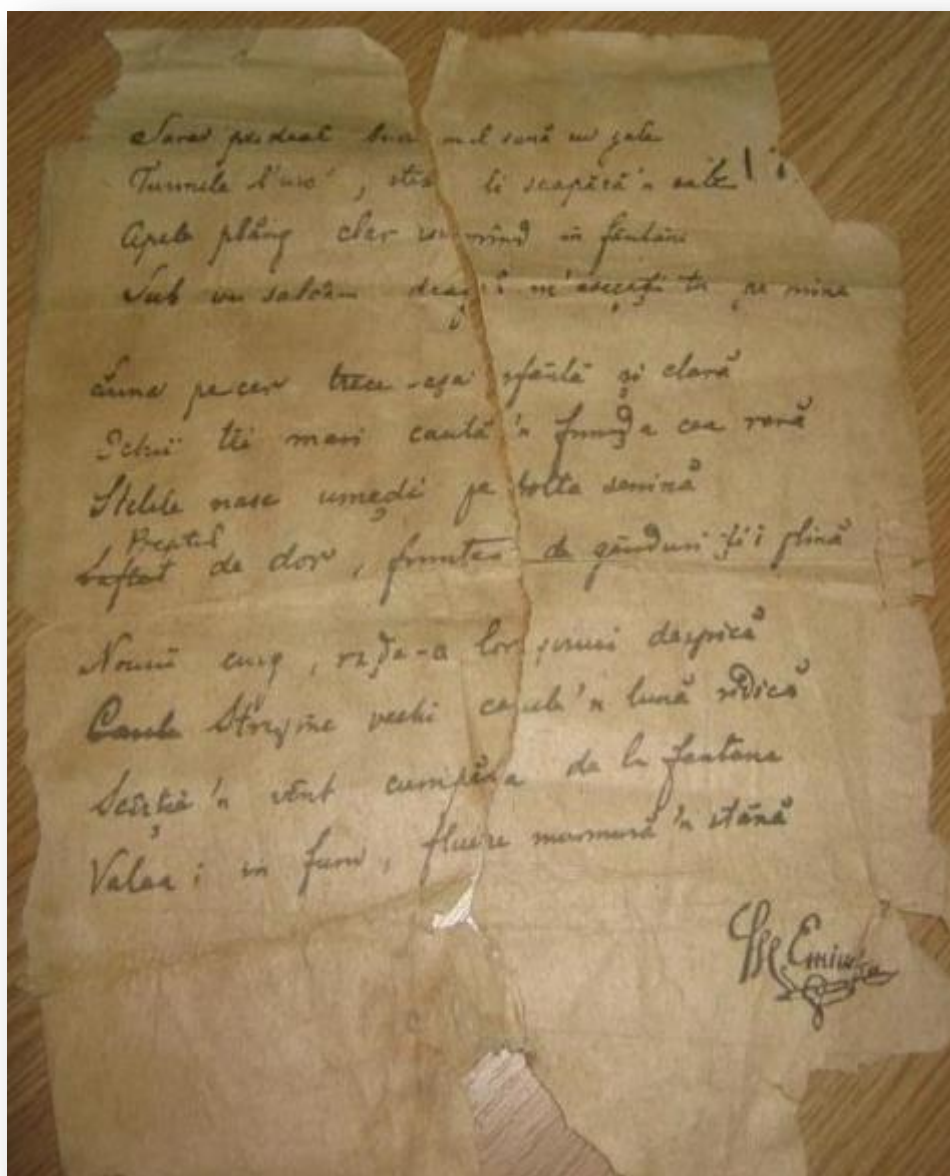 Sara pe deal buciumul sună cu jale
Turmele l'urc', stele li scapără'n cale
Apele plâng clar isvorând în fântâni
Sub un salcâm dragă m'aștepți tu pe mine
Luna pe cer trece-așa sfântă și clară
Ochii tăi mari caută'n frunza cea rară
Stelele nasc umezi pe bolta senină
Pieptul
de dor, fruntea de gânduri ți-i plină
Nourii curg, raze-a lor șiruri despică
Streșine vechi casele'n lună ridică
Scârțăie'n vânt cumpăna de la fântână
Valea-i în fum, fluere murmură'n stână
M. Eminescu